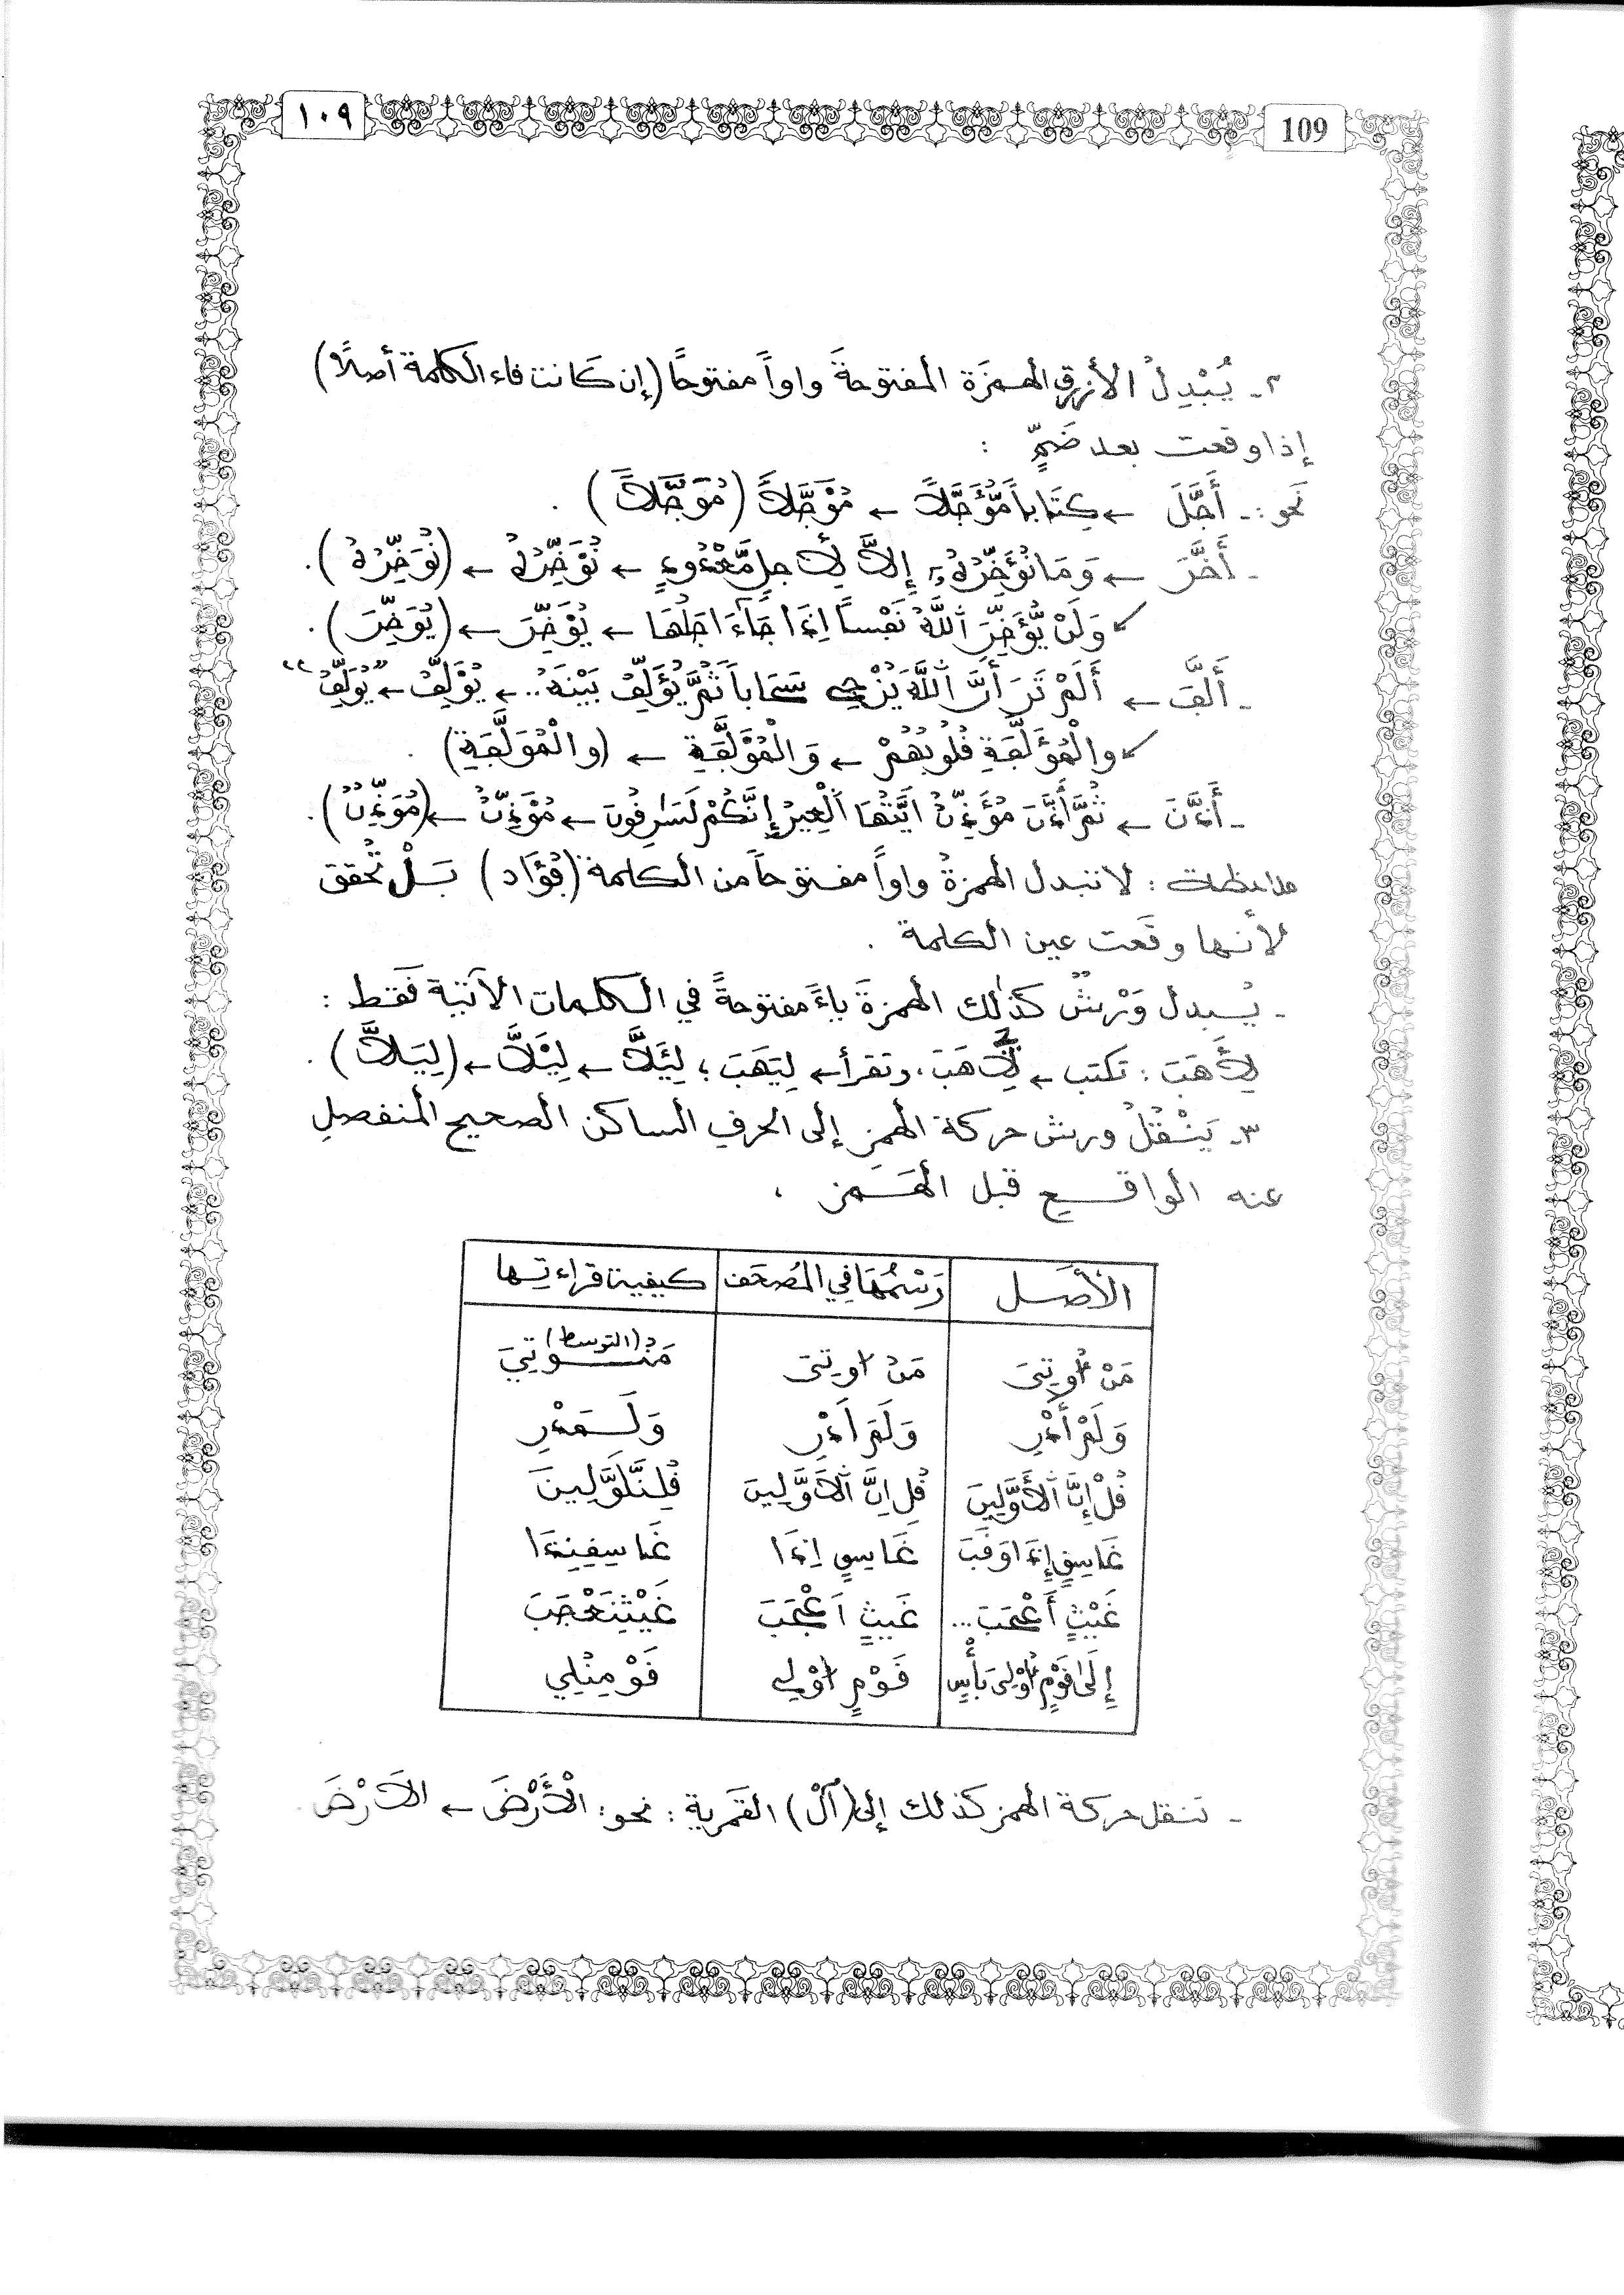 ١٠٩
109
٢- يُبْدِلُ الأزرق الهمزَة المفتوحةَ واواً مفتوحاً (إن كَانت فاء الكلمة أصلًا)
إذا وقعت بعد ضَمٍّ :
نَحو :- أَجَّلَ ← كِتَاباً مُّؤَجَّلاً ← مُوَجَّلاً (مُوَجَّلاً) .
- أَخَّرَ ← وَمَا نُؤَخِّرُهُ إِلاَّ لِأَجلٍ مَّعْدُودٍ ← نُوَخِّرُهُ ← (نُوَخِّرُهُ) .
وَلَنْ يُّؤَخِّرَ اَللَّهُ نَفْساً اِذَا جَآءَ اجَلُهَا ← يُوَخِّرَ ← (يُوَخِّرَ) .
- أَلَّفَ ← أَلَمْ تَرَ أَنَّ اَللَّهَ يُزْجِے سَحَاباً ثُمَّ يُؤَلِّفُ بَيْنَهُ .. ← يُوَلِّفُ ← "يُوَلِّفُ"
والْمُؤَلَّفَةِ قُلُوبُهُمْ ← وَالْمُوَلَّفَةِ ← (والْمُوَلَّفَةِ) .
- أَذَّنَ ← ثُمَّ أَذَّنَ مُؤَذِّنٌ اَيَّتُهَا اَلْعِيرُ إِنَّكُمْ لَسَٰرِقُونَ ← مُوَذِّنٌ ← (مُوَذِّنٌ) .
ملاحظات : لا تبدل الهمزةُ واواً مفتوحاً من الكلمة (فُؤَاد) بَلْ تُحقق
لأنها وقعت عين الكلمة .
- يُبدل وَرْشٌ كذٰلك الهمزةَ ياءً مفتوحةً في الكلمات الآتية فَقط :
لِأَهَبَ : تكتب ← لِأَهَبَ ، وتقرأ ← لِيَهَبَ ؛ لِئَلاَّ ← لِيَلاَّ ← (لِيَلاَّ) .
٣- يَنْقُلُ ورش حركة الهمزِ إلى الحرفِ الساكن الصحيح المنفصلِ
عنه الواقع قبل الهَمز .
الأَصل رَسْمُهَا في المُصحَف كيفية قراءتها
مَنُ اوتِىَ مَنُ اوتِىَ مَنُوتِيَ (التوسط)
وَلَمْ أَدْرِ وَلَمَ اَدْرِ وَلَمَدْرِ
قُلْ إِنَّ اَلأَوَّلِينَ قُلِ اِنَّ اَلاَوَّلِينَ قُلِنَّلَوَّلِينَ
غَاسِقٍ إِذَا وَقَبَ غَاسِقٍ اِذَا غَاسِقِنِذَا
غَيْثٍ أَعْجَبَ ... غَيثٍ اَعْجَبَ غَيْثِنَعْجَبَ
إِلَىٰ قَوْمٍ أُوْلِى بَأْسٍ قَوْمٍ اوْلِے قَوْمِنُلِي
- تنقل حركة الهمز كذلك إلى (اَلْ) القَمرية : نحو : الْأَرْضَ ← الَارْضَ .